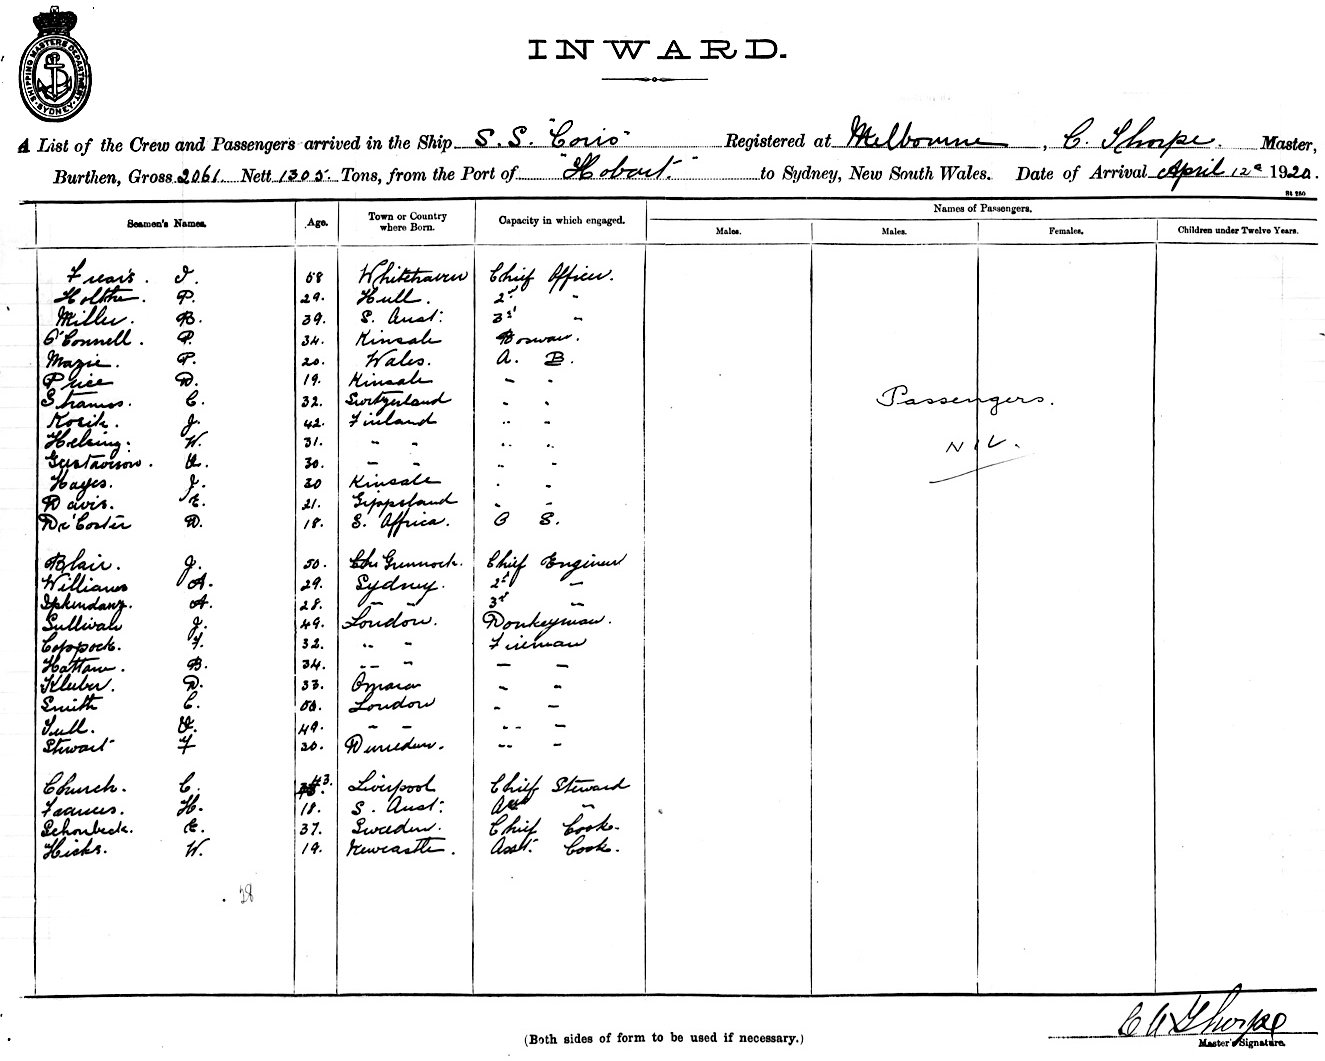 SHIPPING MASTERS DEPARTMENT SYDNEY
INWARD.
A List of the Crew and Passengers arrived in the Ship S. S. "Coris" Registered at Melbourne, C. Thorpe. Master,
Burthen, Gross 2061 Nett 1305. Tons, from the Port of "Hobart" to Sydney, New South Wales. Date of Arrival April 12th 1920.
St 280
Seamen's Names. Age. Town or Country where Born. Capacity in which engaged. Names of Passengers.
Males. Males. Females. Children under Twelve Years.
J. 58 Whitehaven Chief Officer.
P. 29. Hull. 2nd "
Miller. B. 39. S. Aust. 3rd "
O'Connell. P. 34. Kinsale Boswan.
Mazie. P. 20. Wales. A. B.
Price D. 19. Kinsale - -
Strauss. C. 32. Switzerland - -
J. 42. Finland - -
Helsing. W. 31. - - - -
Gustavison. 30. - - - -
Hayes. J. 30 Kinsale - -
Davis. E. 21. Gippsland - -
De'Coster D. 18. S. Africa. O S.
Blair. J. 50. Greenock. Chief Engineer
Williams A. 29. Sydney. 2nd -
A. 28. - - 3rd -
Sullivan J. 49. London. Donkeyman.
Coppock. F. 32. - - Fireman
Hattam. B. 34. - - - -
Kluber. D. 33. - -
Smith C. 50. London - -
49. - - - -
Stewart F 30. Dunedin. - -
Church. C. 43. Liverpool Chief Steward
Frances. H. 18. S. Aust. Asst -
Schonbeck. E. 37. Sweden. Chief Cook.
Hicks. W. 19. Newcastle. Asst. Cook.
Passengers.
NIL.
28
C A Thorpe
Master's Signature.
(Both sides of form to be used if necessary.)